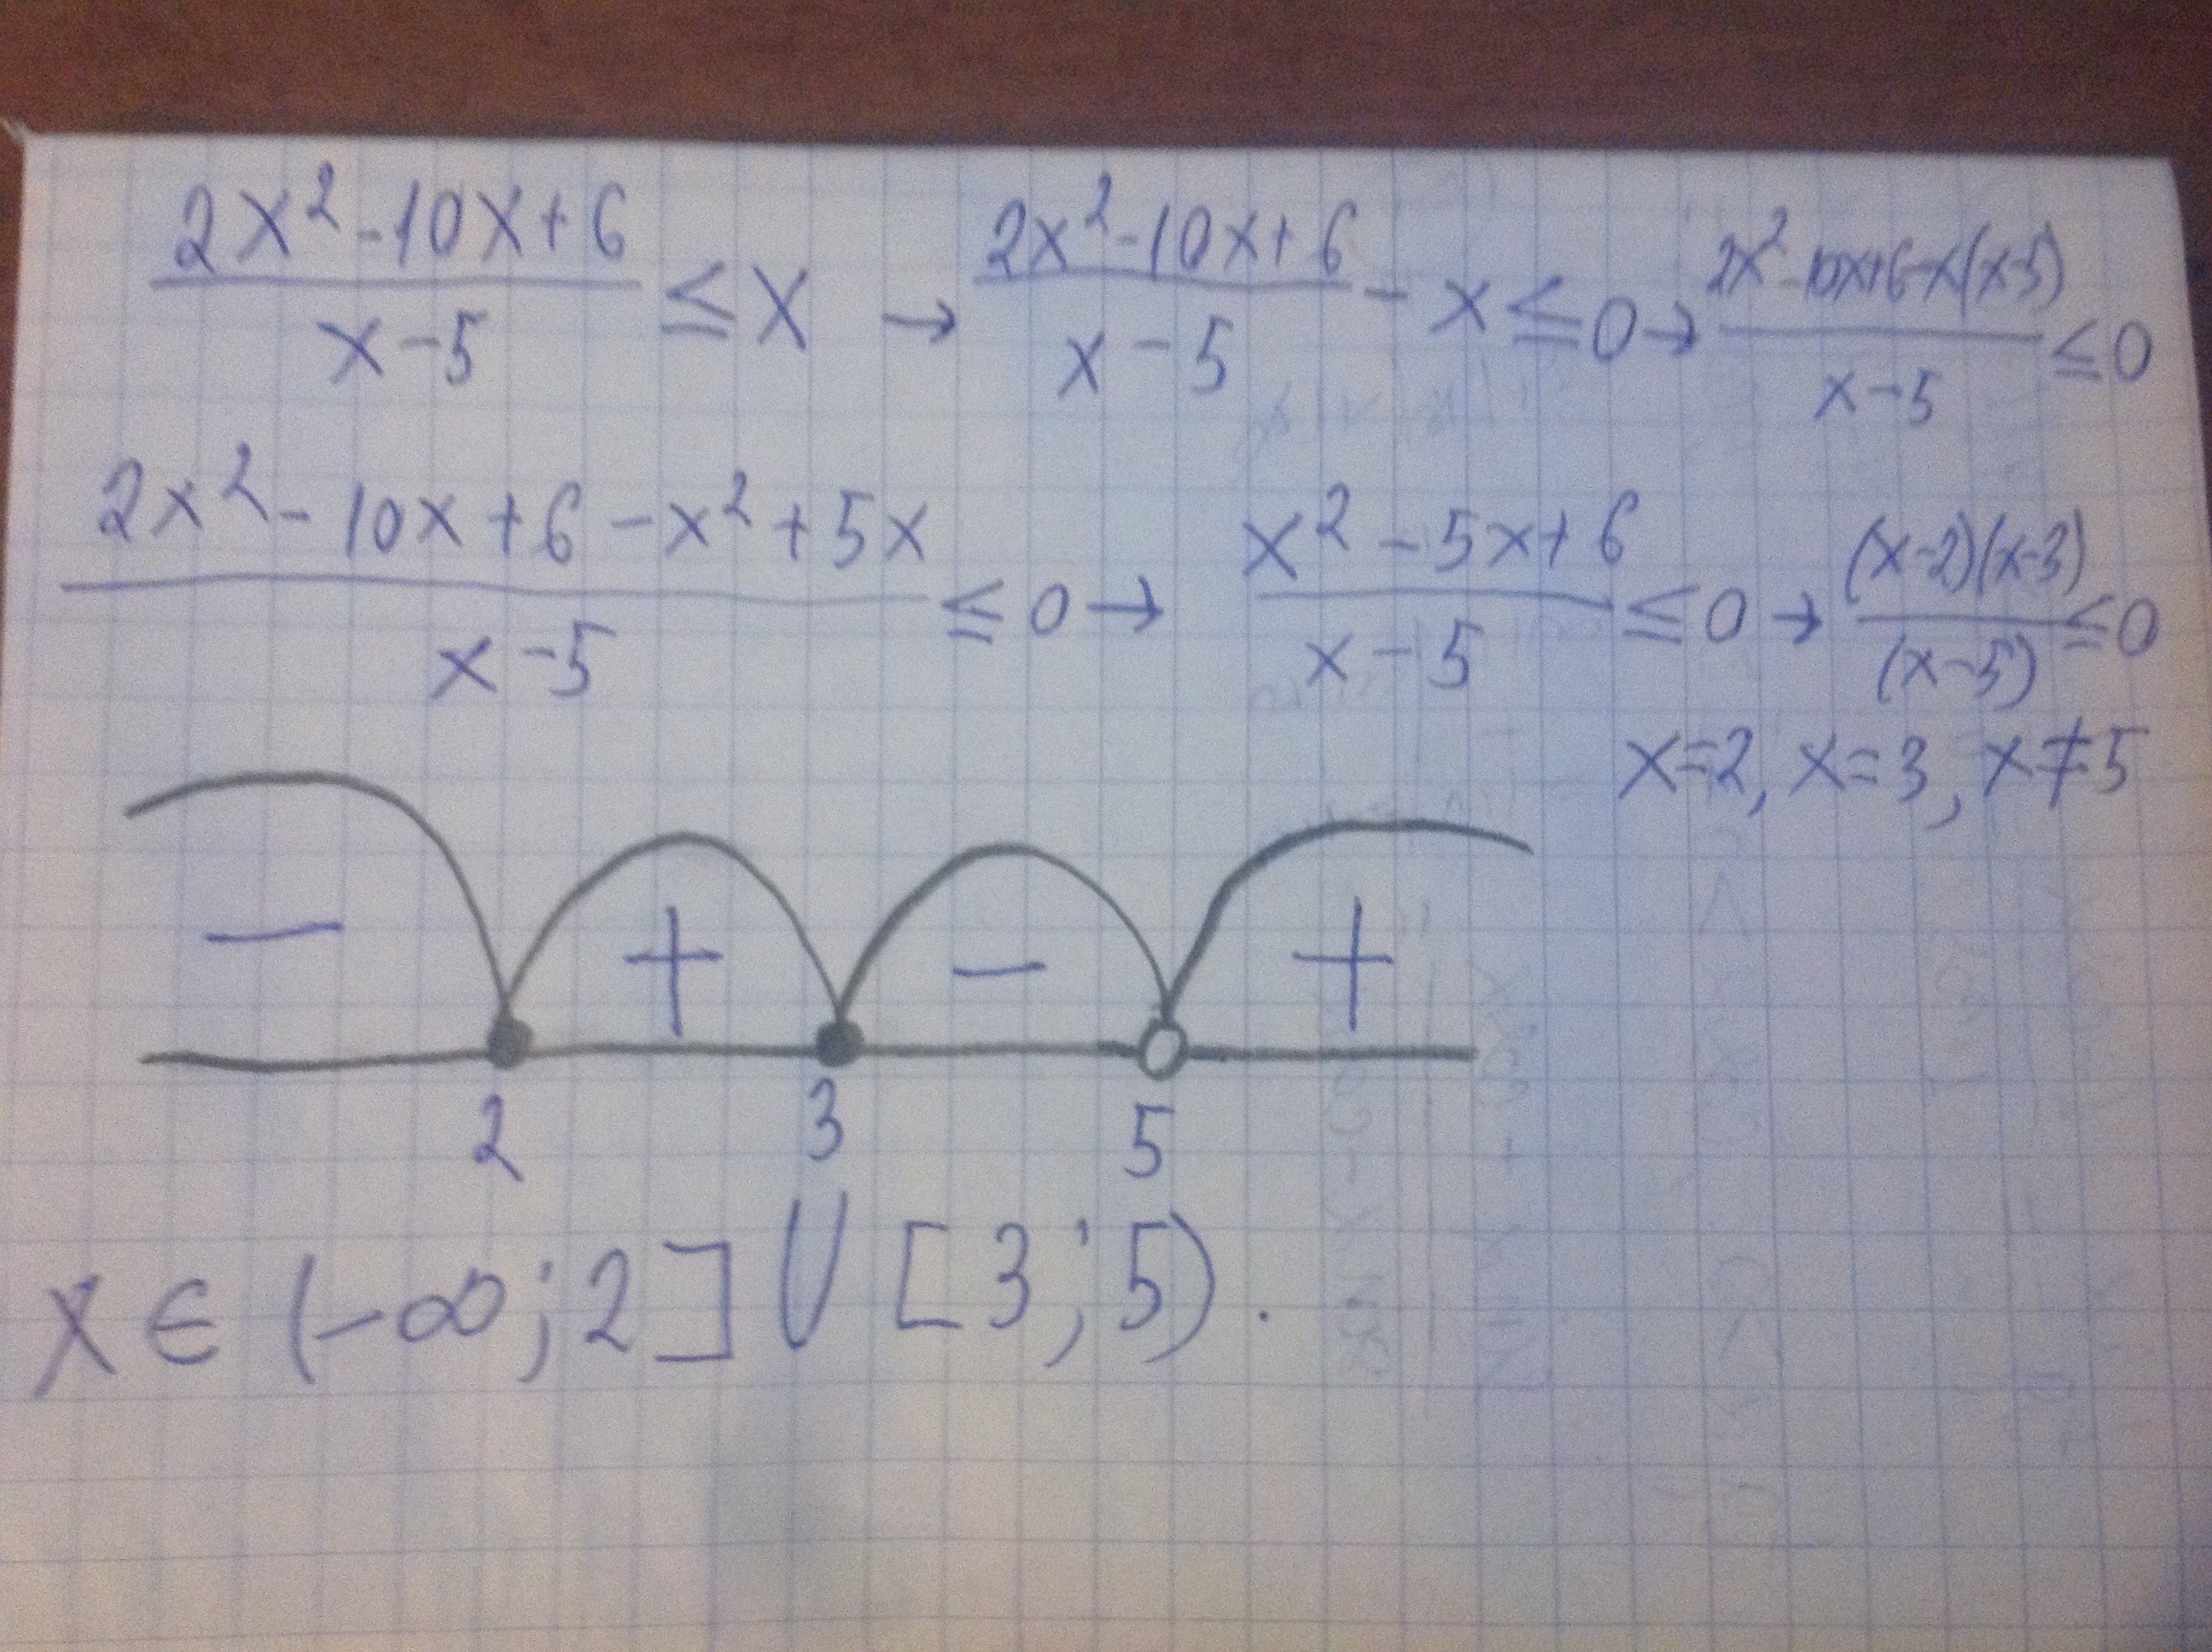 (2x²-10x+6)/(x-5) ≤ x → (2x²-10x+6)/(x-5) - x ≤ 0 → (2x²-10x+6-x(x-5))/(x-5) ≤ 0
(2x²-10x+6-x²+5x)/(x-5) ≤ 0 → (x²-5x+6)/(x-5) ≤ 0 → ((x-2)(x-3))/((x-5)) ≤ 0
x=2, x=3, x≠5
- + - +
2 3 5
x ∈ (-∞; 2] ∪ [3; 5).